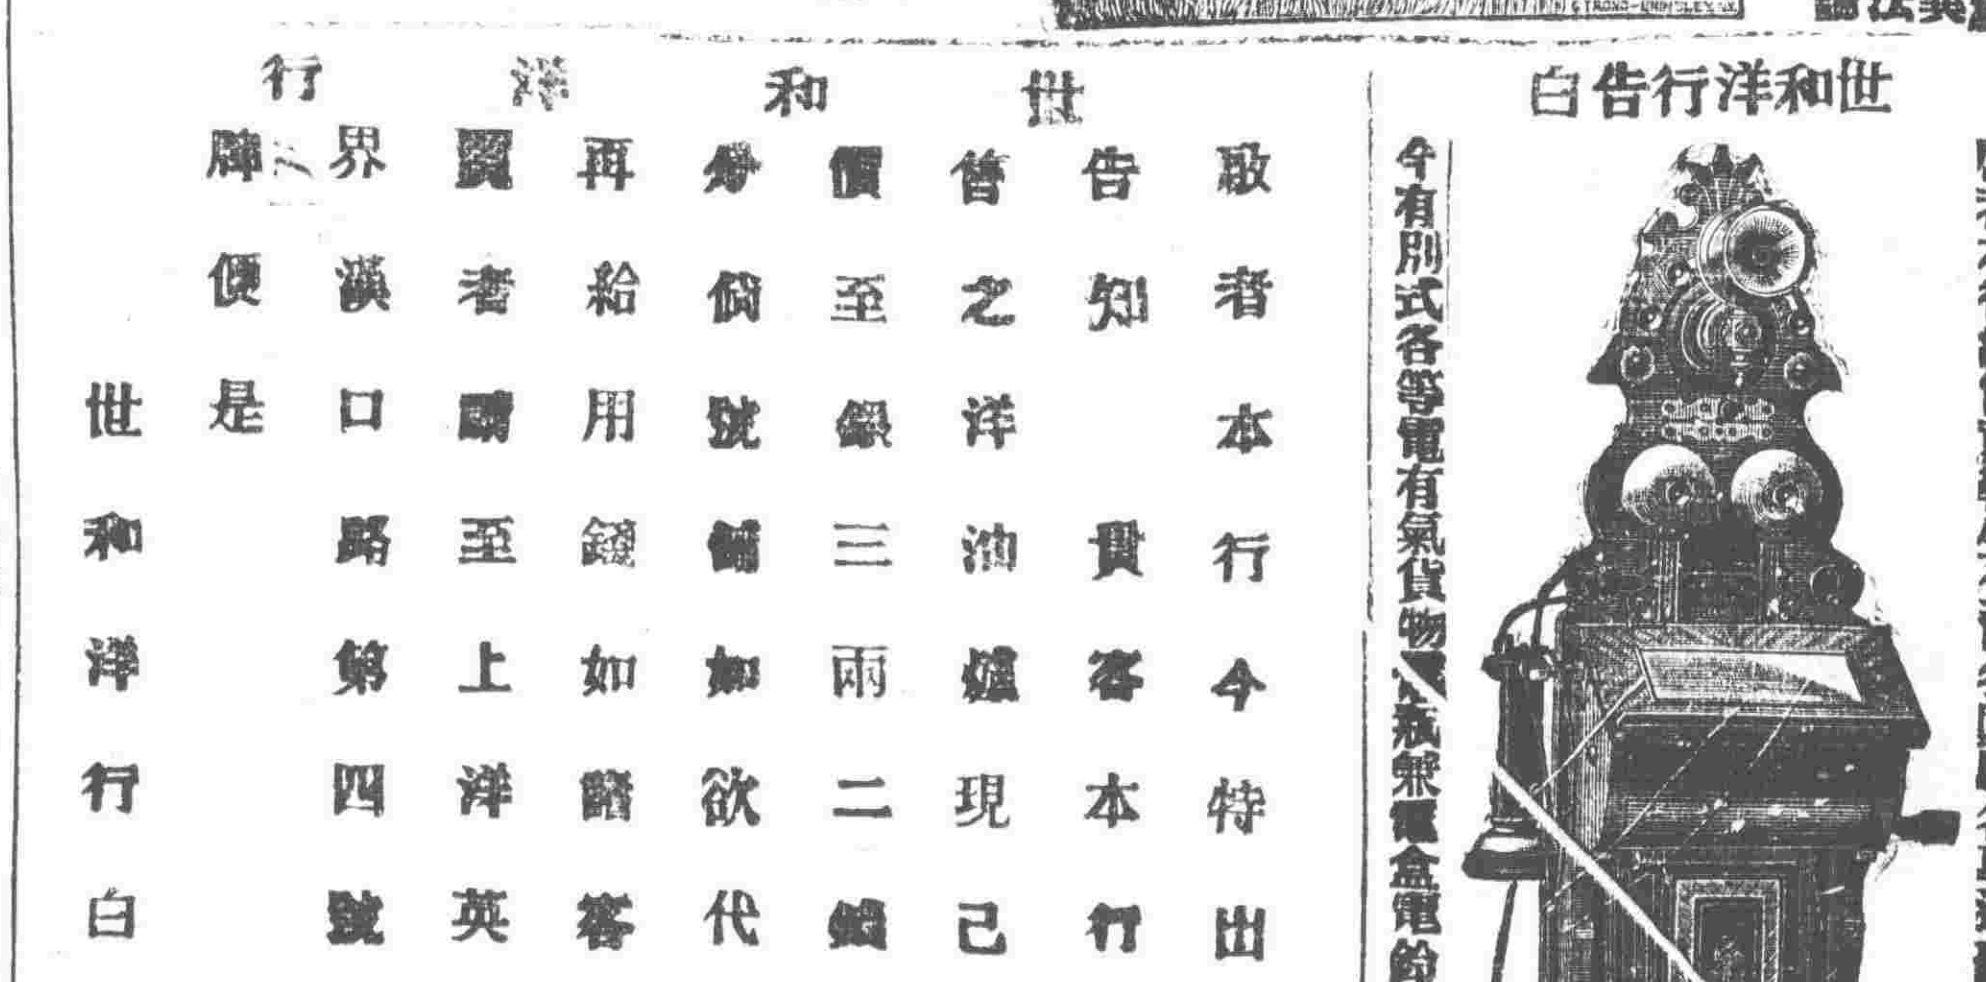 世和洋行告白
今有別式各等電有氣貨物瓶兼電盒電鈴
世和洋行
啟者本行今特出
告知 貴客本行
售之洋油爐現己
價至銀三兩二錢
分倘號舖如欲代
再給用錢如諸客
買者請至上洋英
界漢口路第四號
牌便是
世和洋行白